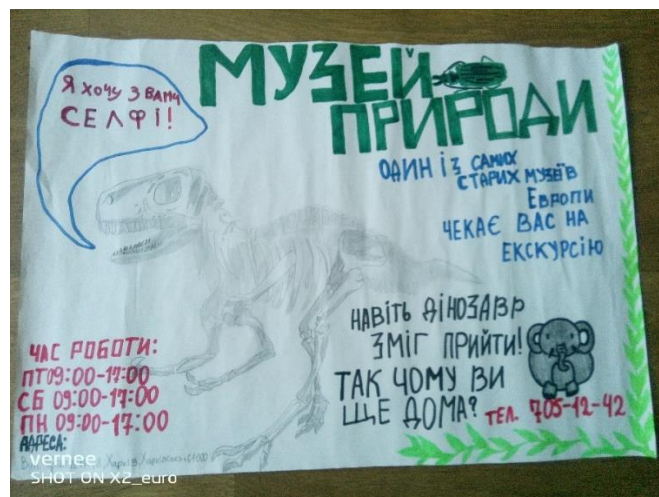 Я ХОЧУ З ВАМИ
СЕЛФІ!
МУЗЕЙ
ПРИРОДИ
ОДИН ІЗ САМИХ
СТАРИХ МУЗЕЇВ
ЕВРОПИ
ЧЕКАЄ ВАС НА
ЕКСКУРСІЮ
НАВІТЬ ДІНОЗАВР
ЗМІГ ПРИЙТИ!
ТАК ЧОМУ ВИ
ЩЕ ДОМА?
ТЕЛ. 705-12-42
ЧАС РОБОТИ:
ПТ 09:00-17:00
СБ 09:00-17:00
ПН 09:00-17:00
АДРЕСА:
Харків, Харківська
vernee
SHOT ON X2_euro